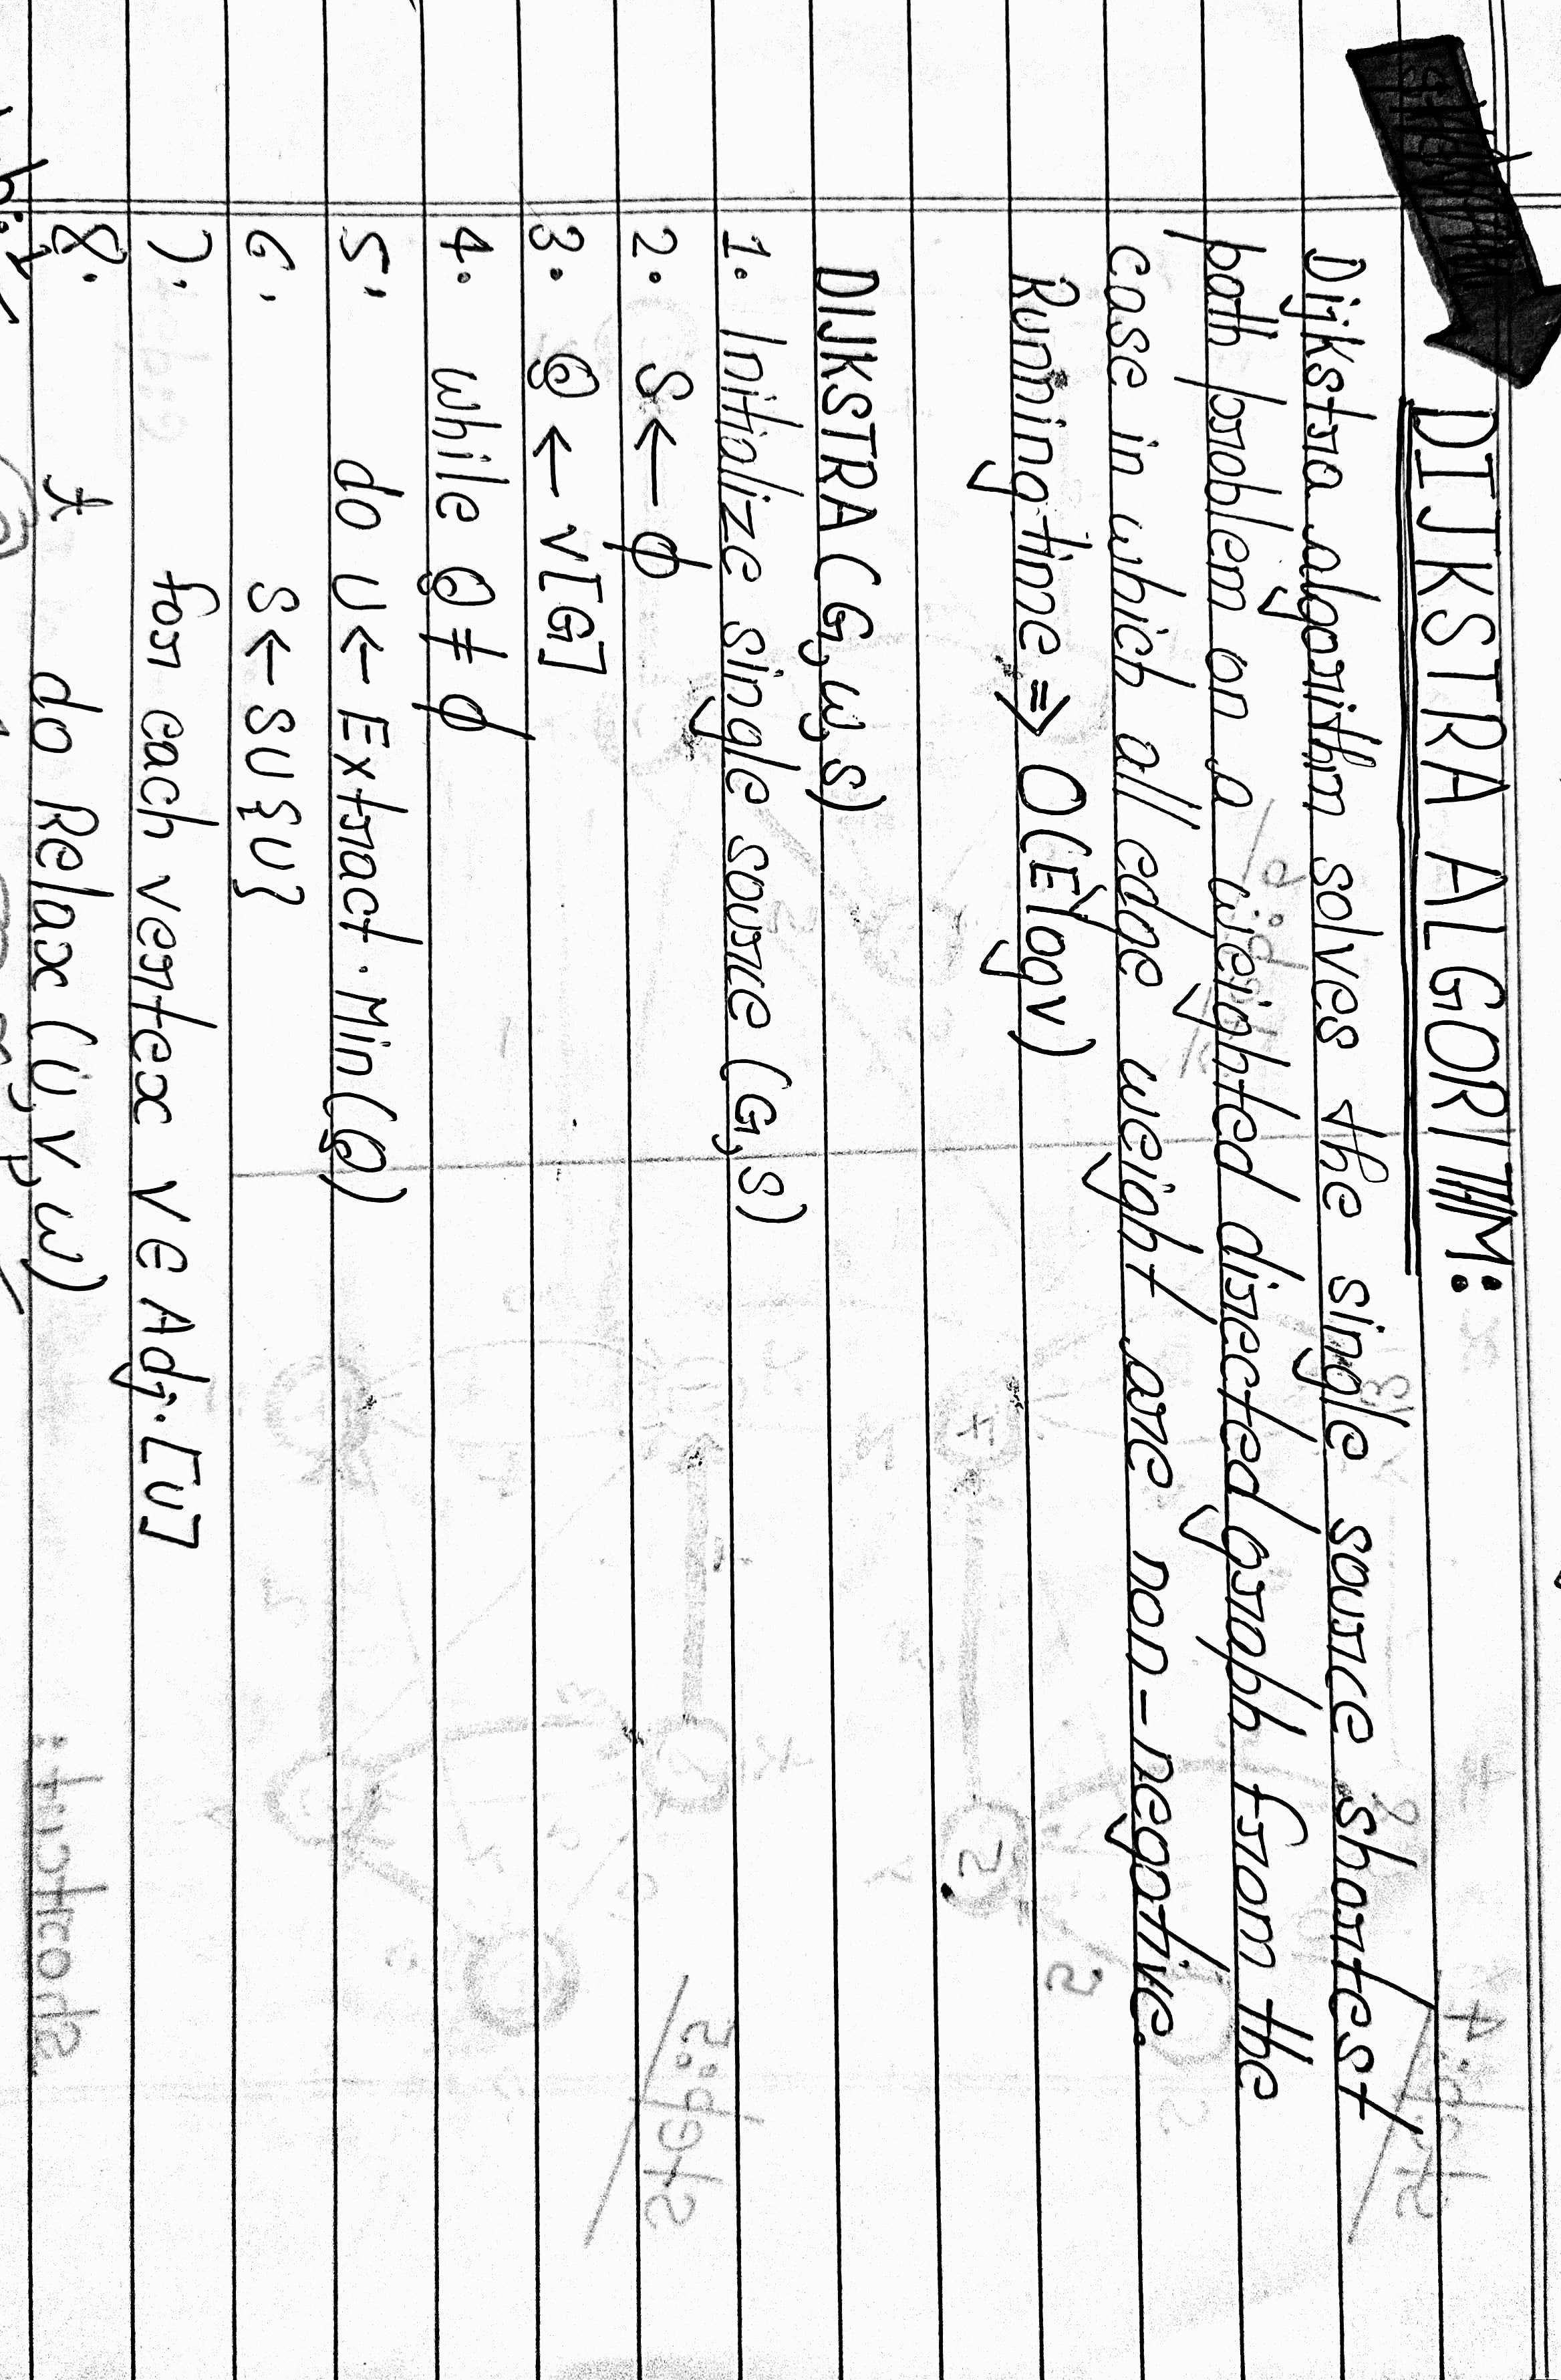 DIJKSTRA ALGORITHM:
Dijkstra algorithm solves the single source shortest
path problem on a weighted directed graph from the
case in which all edge weight are non-negative.
Running time => O(E log v)
DIJKSTRA (G, w, s)
1. Initialize single source (G, s)
2. S ← φ
3. Q ← v[G]
4. while Q ≠ φ
5. do U ← Extract. Min(Q)
6. S ← S U {U}
7. for each vertex v e Adj. [u]
8. do Relax (u, v, w)